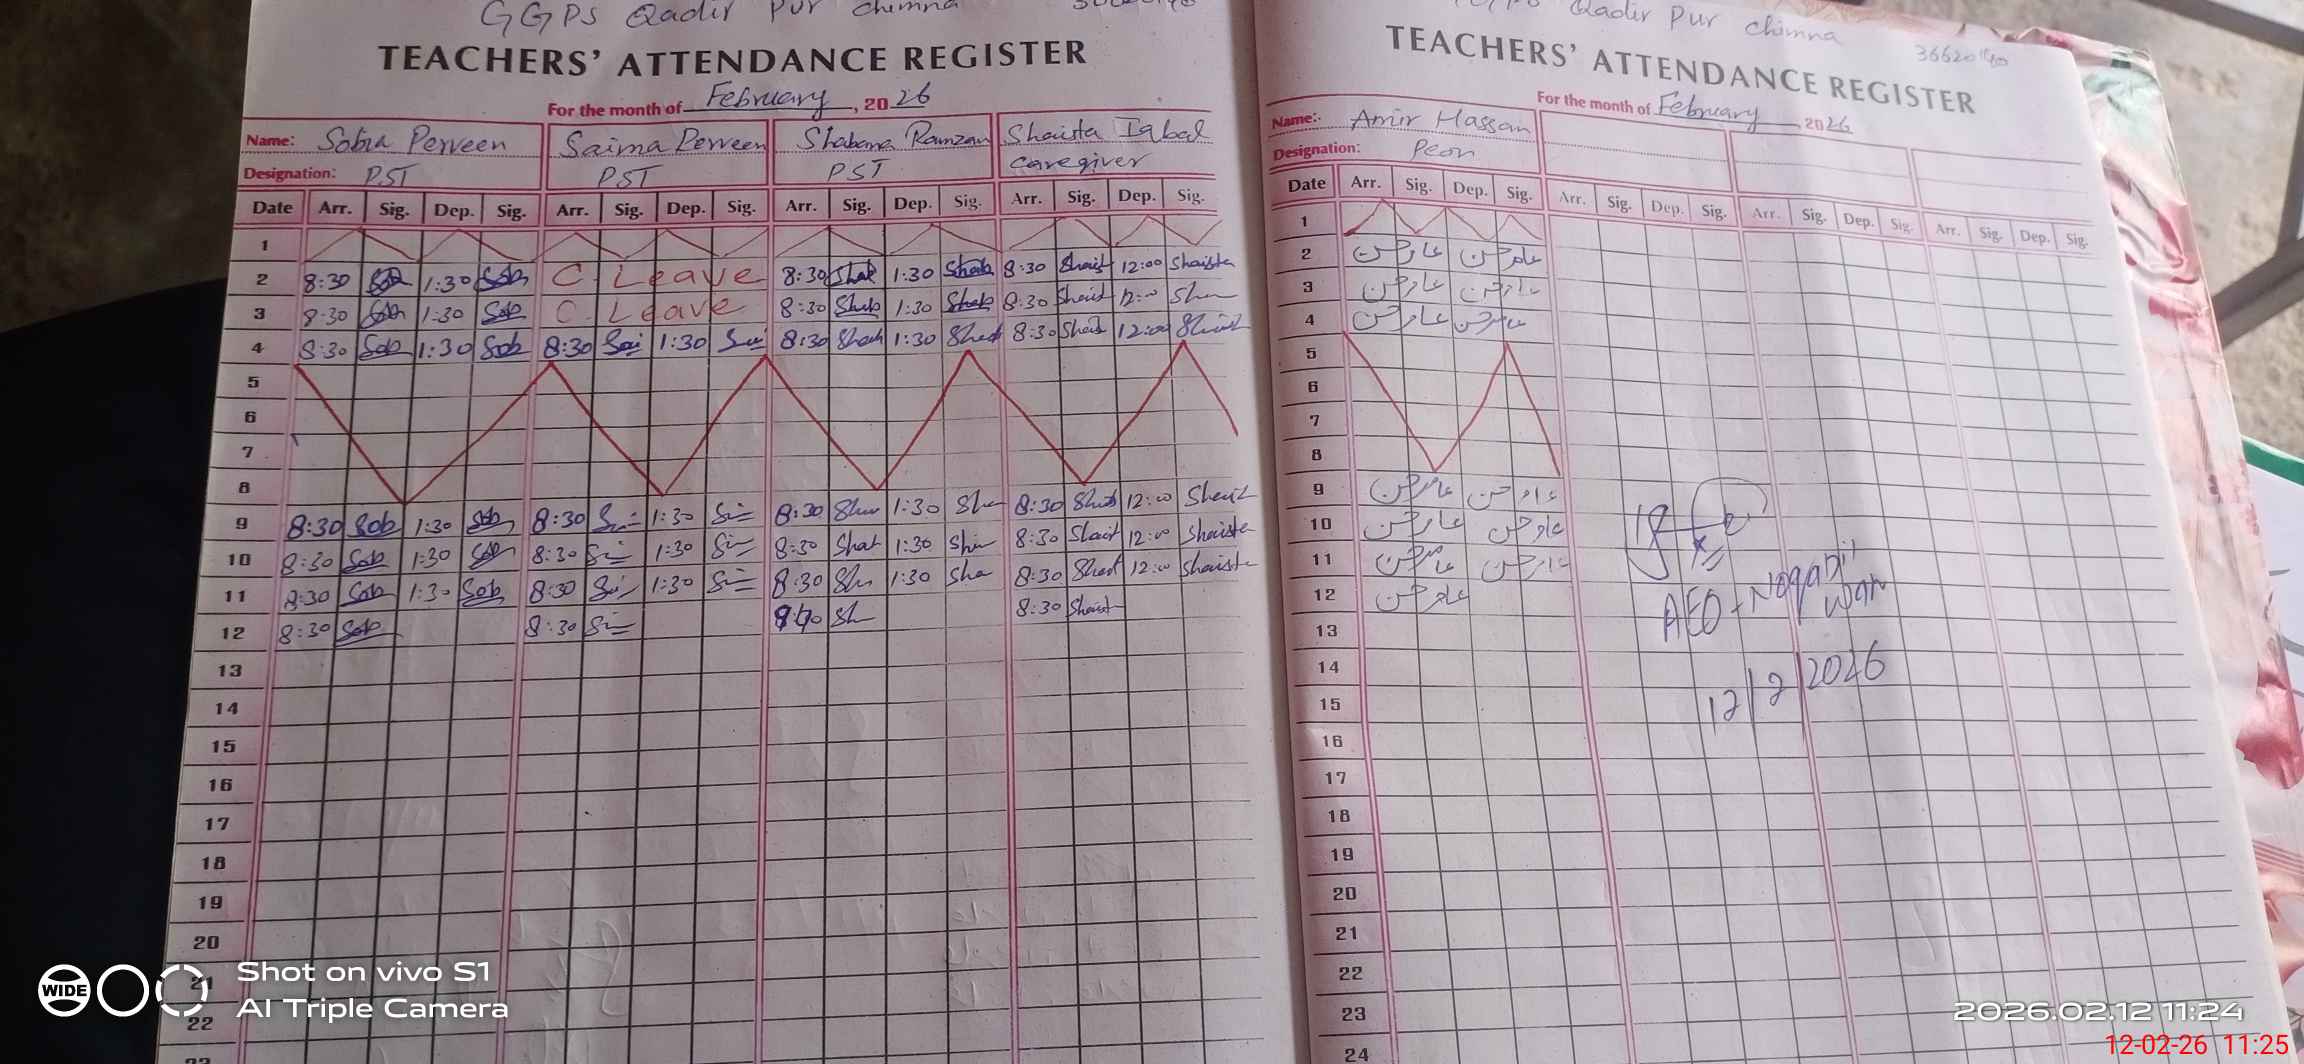 GGPS Qadir Pur Chimna
TEACHERS' ATTENDANCE REGISTER
For the month of February, 2026
Name: Sobia Perveen Saima Perveen Shabana Ramzan Shaista Iqbal
Designation: PST PST PST Caregiver
Date Arr. Sig. Dep. Sig. Arr. Sig. Dep. Sig. Arr. Sig. Dep. Sig. Arr. Sig. Dep. Sig.
1
2 8:30 Sob 1:30 Sob C. Leave 8:30 Shab 1:30 Shab 8:30 Shaist 12:00 Shaista
3 8:30 Sob 1:30 Sob C. Leave 8:30 Shab 1:30 Shab 8:30 Shaist 12:00 Sha
4 8:30 Sob 1:30 Sob 8:30 Sai 1:30 8:30 Shab 1:30 8:30 12:00
5
6
7
8
9 8:30 Sob 1:30 Sob 8:30 1:30 8:30 1:30 8:30 12:00
10 8:30 Sob 1:30 Sob 8:30 1:30 8:30 1:30 8:30 12:00 Shaista
11 8:30 Sob 1:30 Sob 8:30 1:30 8:30 1:30 Sha 8:30 12:00 Shaista
12 8:30 Sob 8:30 Sh 8:30 Shaist
13
14
15
16
17
18
19
20
21
22
23
Qadir Pur Chimna
36620140
TEACHERS' ATTENDANCE REGISTER
For the month of February 2026
Name: Amir Hassan
Designation: Peon
Date Arr. Sig. Dep. Sig. Arr. Sig. Dep. Sig. Arr. Sig. Dep. Sig. Arr. Sig. Dep. Sig.
1
2 عامر حسن عامر حسن
3 عامر حسن عامر حسن
4 عامر حسن عامر حسن
5
6
7
8
9 عامر حسن عامر حسن
10 عامر حسن عامر حسن
11 عامر حسن عامر حسن
12 عامر حسن
13
14
15
16
17
18
19
20
21
22
23
24
AEO
12/2/2026
WIDE
Shot on vivo S1
AI Triple Camera
2026.02.12 11:24
12-02-26 11:25